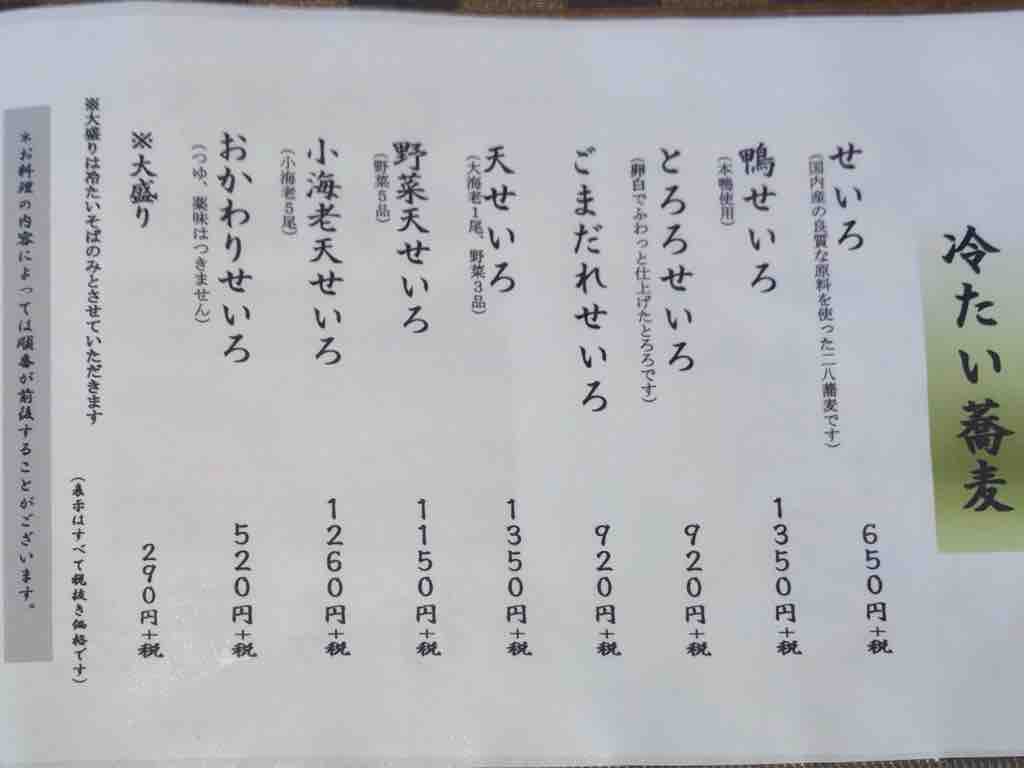 冷たい蕎麦
せいろ
650円+税
(国内産の良質な原料を使った二八蕎麦です)
鴨せいろ
1350円+税
(本鴨使用)
とろろせいろ
920円+税
(卵白でふわっと仕上げたとろろです)
ごまだれせいろ
920円+税
天せいろ
1350円+税
(大海老1尾、野菜3品)
野菜天せいろ
1150円+税
(野菜5品)
小海老天せいろ
1260円+税
(小海老5尾)
おかわりせいろ
520円+税
(つゆ、薬味はつきません)
※大盛り
290円+税
※大盛りは冷たいそばのみとさせていただきます
(表示はすべて税抜き価格です)
*お料理の内容によっては順番が前後することがございます。